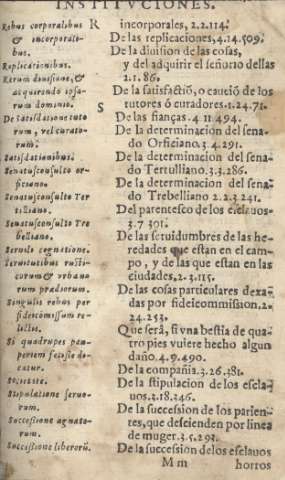 INSTITVCIONES.
Rebus corporalibus R incorporales, 2.2.114.
& incorporalibus. De las replicaciones, 4.14.509.
De la diuision de las cosas,
Replicationibus. y del adquirir el señorio dellas
Rerum diuisione, & 2.1.86.
acquirendo ipsarum dominio. De la satisfactiõ, o cauciõ de los
S tutores ó curadores. 1.24.71.
De Satisdatione tutorum, vel curatorum. De las fianças. 4 11.494.
De la determinacion del senado Orficiano. 3.4.291.
Satisdationibus. De la determinacion del senado Tertulliano. 3.3.286.
Senatusconsulto orficiano. De la determinacion del senado Trebelliano 2.2 3.241.
Senatusconsulto Tertiliano. Del parentesco de los esclauos.
Senatusconsulto Trebelliano. 3.7 301.
De las seruidumbres de las heredades que estan en el campo, y de las que estan en las
Seruile cognatione.
Seruitutibus rusticorum & vrbanorum prædiorum. ciudades, 2.3.115.
De las cosas particulares dexadas por fideicommission. 2.
Singulis rebus per fideicomissum relictis. 24.253.
Que será, si vna bestia de quatro pies vuiere hecho algun
Si quadrupes pauperiem fecisse dicatur. daño. 4.9.490.
De la compañia. 3.26.381.
Societate. De la stipulacion de los esclauos. 3.18.346.
Stipulatione seruorum. De la succession de los parientes, que descienden por linea
Successione agnatorum. de muger. 3.5.293.
Successione liberorũ. De la succession de los esclauos
M m horros